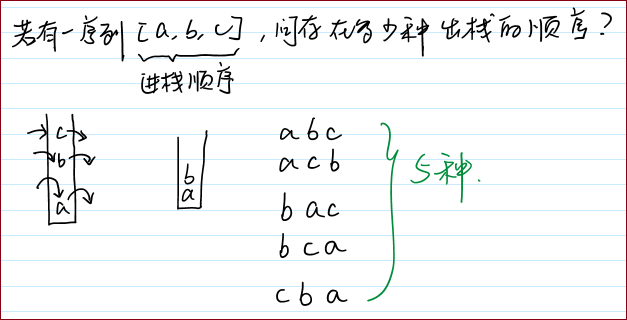 若有一序列[a,b,c],问存在多少种出栈的顺序?
进栈顺序
c
b
a
b
a
abc
acb
bac
bca
cba
5种.